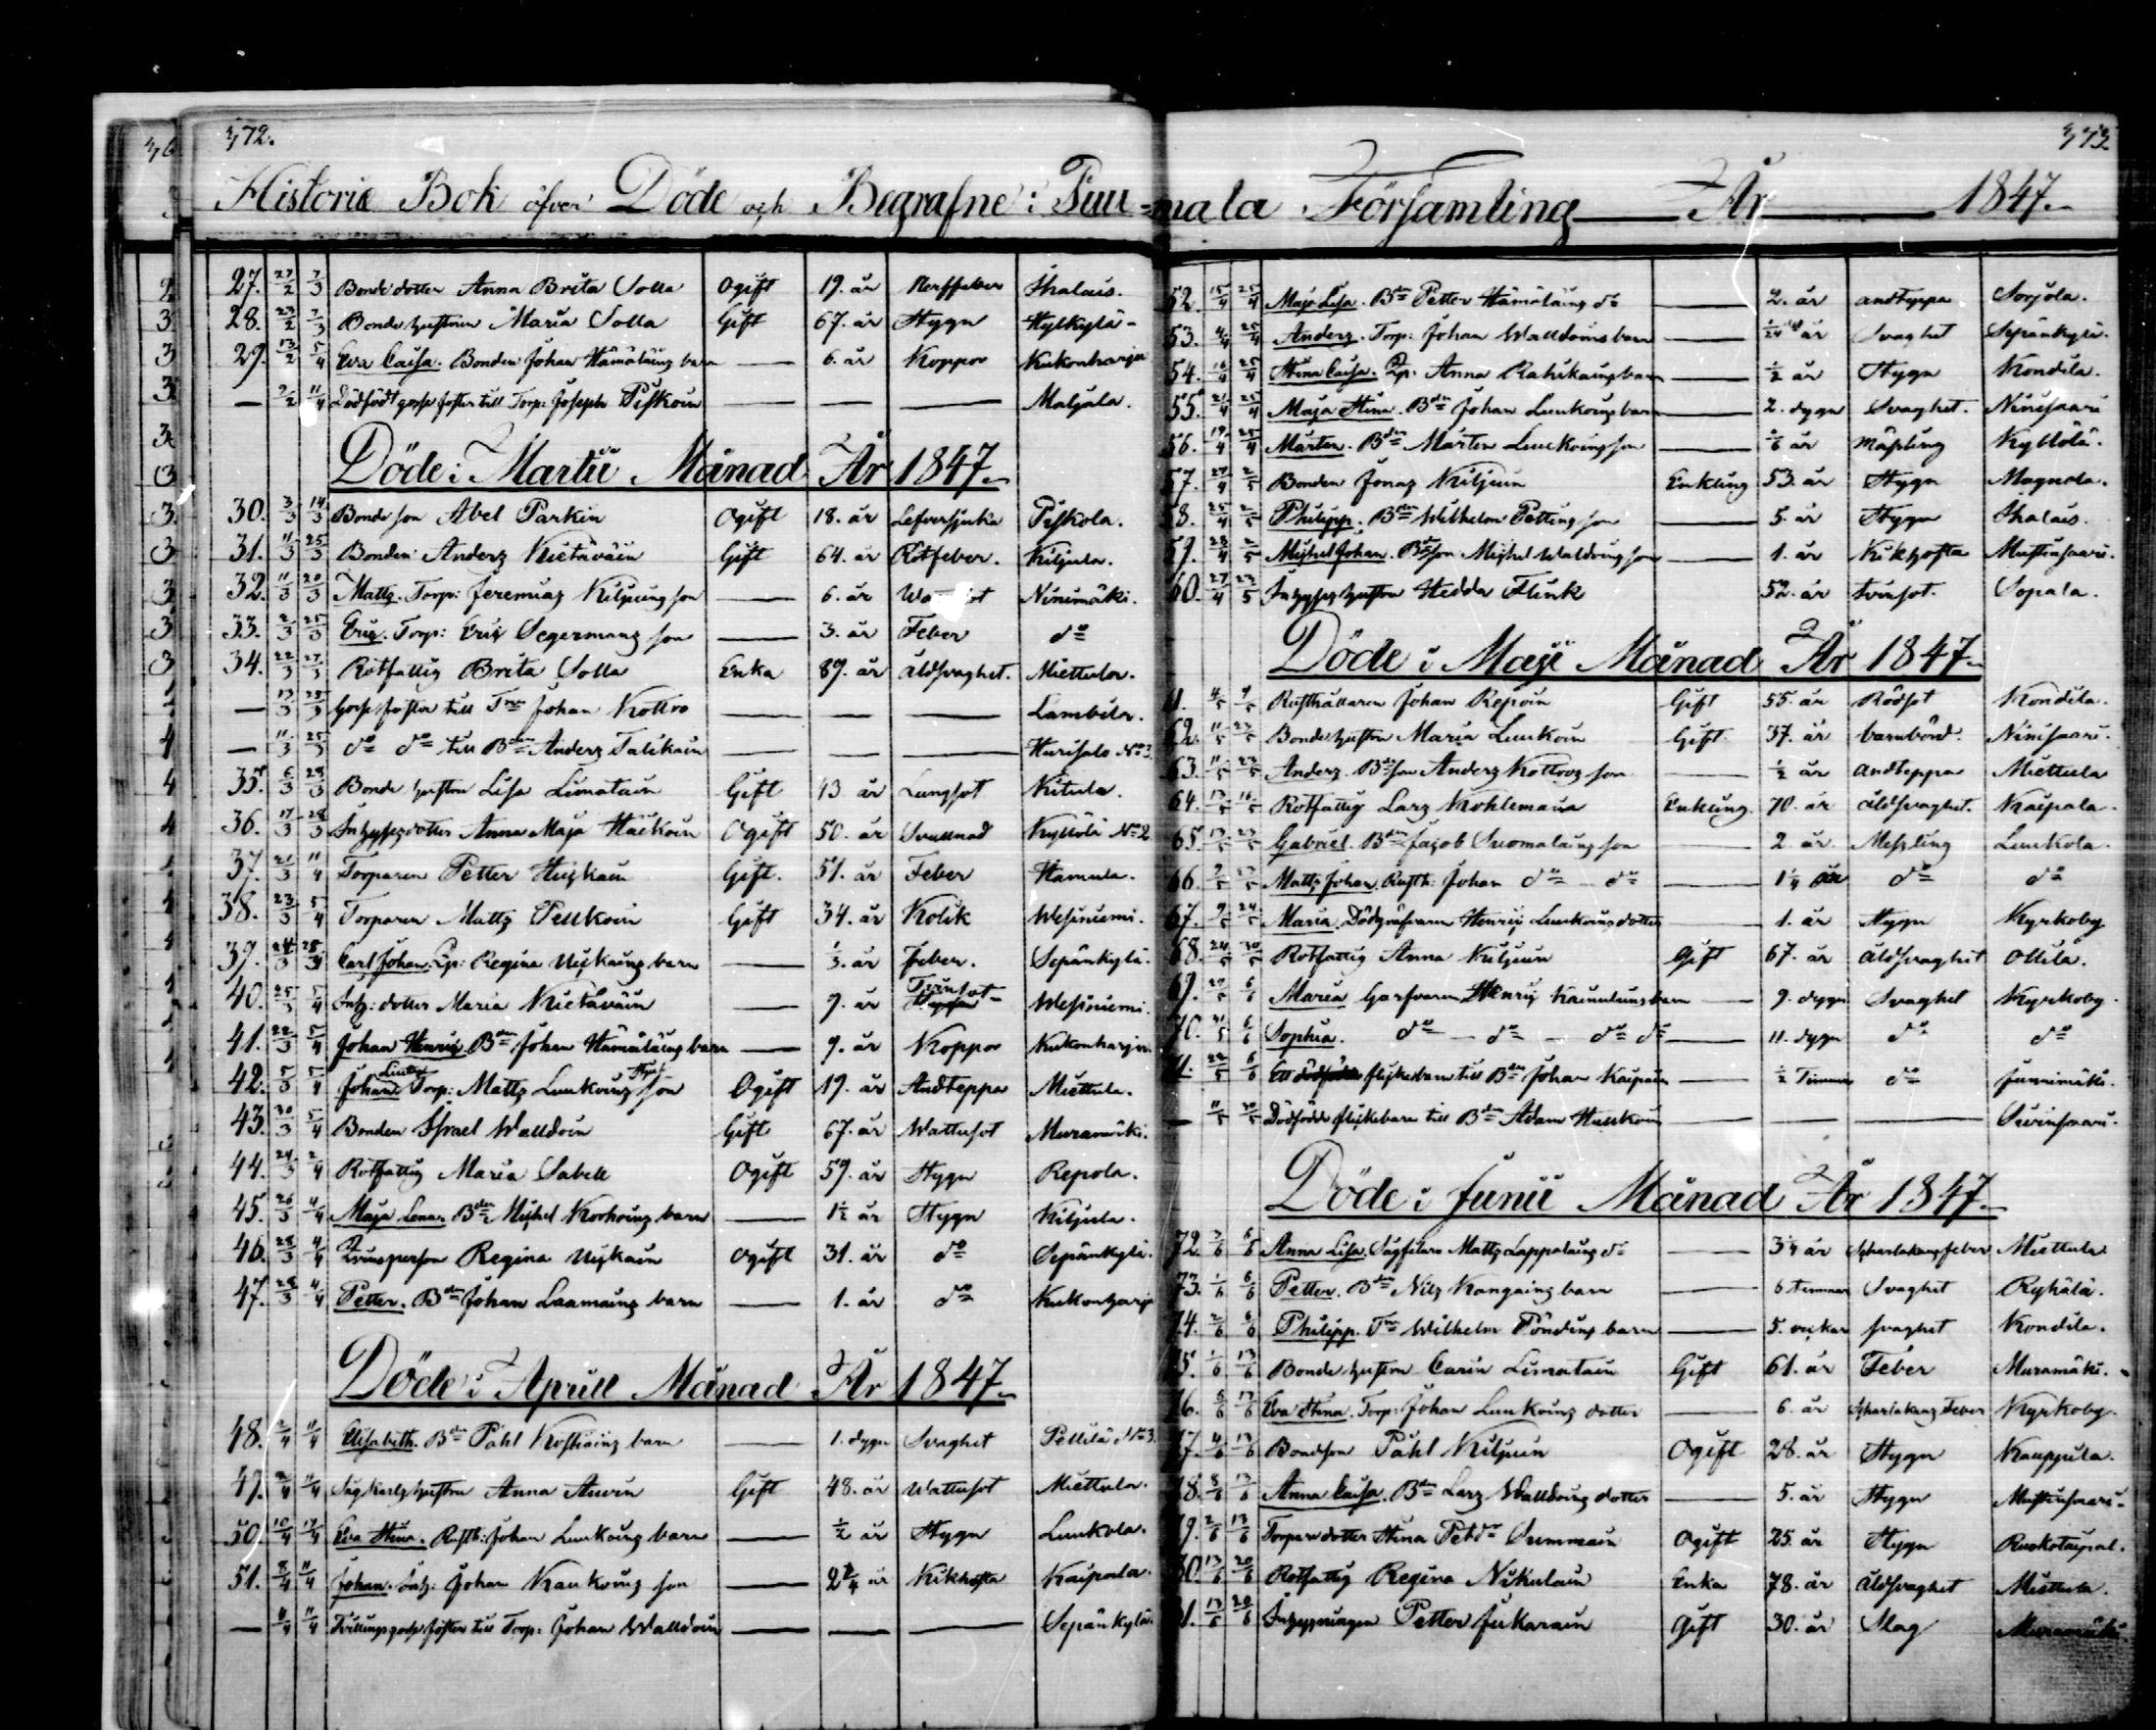 372.
Historie Bok öfver Döde och Begrafne i Puu-
27. 27/2 7/3 Bonde dotter Anna Brita Solla Ogift 19. år Nerffeber Ihalais.
28. 23/2 7/3 Bonde hustrun Maria Solla Gift 67. år Stygn Hylkylä-
29. 13/2 5/4 Eva Caisa. Bonden Johan Hämäläins barn — 6. år Koppor Kukonharju
— 2/2 11/4 Dödfödt gosse foster till Torp: Joseph Piskoin — — — Maljala.
Döde i Martii Månad År 1847.
30. 3/3 14/3 Bonde son Abel Parkin Ogift 18. år Lefversjuka Piskola.
31. 11/3 25/3 Bonden Anders Kietäväin Gift 64. år Rötfeber. Kiljula.
32. 11/3 20/3 Matts. Torp: Jeremias Kiljuins son — 6. år Ninimäki.
33. 2/3 25/3 Eric. Torp: Eric Segermans son — 3. år Feber do
34. 22/3 27/3 Rotfattig Brita Solla Enka 89. år äldsvaghet. Miettula.
— 13/3 25/3 Gosse foster till Torp Johan Kottro — — — Lambila.
— 11/3 25/3 do do till Bden Anders Talikain — — — Hurisalo No 3
35. 6/3 28/3 Bonde hustrun Lisa Limatain Gift 43 år Lungsot Kitula.
36. 17/3 28/3 Inhyses dotter Anna Maja Häikoin Ogift 50. år Svullnad Kyllölä No 2
37. 21/3 11/4 Torparen Petter Huskain Gift. 51. år Feber Hamula.
38. 23/3 5/4 Torparen Matts Pellkoin Gift 34. år Kolik Wesiniemi.
39. 24/3 28/3 Carl Johan. Qp: Regina Uiskains barn — 1/3. år Feber. Sepänkylä.
40. 25/3 5/4 Inh: dotter Maria Kietäväin — 9. år Tvinsot- Wesiniemi.
41. 22/3 5/4 Johan Henric Bden Johan Hämäläins barn — 9. år Koppor Kukonharju.
42. 5/3 5/4 Johan Torp: Matts Luukoins son Ogift 19. år Andteppa Miettula.
43. 30/3 5/4 Bonden Israel Walldoin Gift 67. år Wattusot Muramäki.
44. 24/3 2/4 Rotfattig Maria Sabell Ogift 59. år Stygn Repola.
45. 26/3 4/4 Maja Lena. Bden Michel Korhoins barn — 1 1/2 år Stygn Kiljula.
46. 28/3 4/4 Qvinsperson Regina Uiskain Ogift 31. år do Sepänkylä.
47. 28/3 4/4 Petter. Bden Johan Laamains barn — 1. år do Kukonharju
Döde i Aprill Månad År 1847.
48. 2/4 11/4 Elisabeth. Bden Påhl Koskiains barn — 1. dygn Svaghet Pellilä No 3.
49. 2/4 11/4 Sågkarls hustrun Anna Auvin Gift 48. år Wattusot Miettula.
50 10/4 17/4 Eva Stina. Rusth: Johan Luukoins barn — 1/2 år Stygn Luukola.
51. 8/4 11/4 Johan. Inh: Johan Kaukoins son — 2 2/4 år Kikhosta Kaipala.
— 11/4 11/4 Tvillingsgosse foster till Torp: Johan Walldoin — — — Sepänkylä.
373.
mala Församling — År — 1847.
52. 15/4 25/4 Maja Lisa. Bden Petter Hämäläins do — 2. år andtyppa Sorjola.
53. 4/4 25/4 Anders. Torp: Johan Walldoins barn — 1/24 år Svaghet Sepänkylä.
54. 16/4 25/4 Stina Caisa. Qp: Anna Rahikains barn — 1/2 år Stygn Kondila.
55. 21/4 25/4 Maja Stina. Bden Johan Luukoins barn — 2. dygn Svaghet. Ninisaari
56. 19/4 25/4 Mårten. Bden Mårten Luukoins son — 1/6 år mässling Kyllölä.
57. 24/4 2/5 Bonden Jonas Kiljuin Enkling 53. år Stygn Magnola.
58. 25/4 2/5 Philipp. Bden Wilhelm Pettins son — 5. år Stygn Ihalais.
59. 28/4 2/5 Michel Johan. Bdeson Michel Waldoins son — 1. år Kikhosta Mustinsaari.
60. 27/4 23/5 Inhyses hustrun Hedda Flink 52. år tvinsot. Sopala.
Döde i Maji Månad År 1847.
61. 4/5 9/5 Rusthållaren Johan Repoin Gift 55. år Rödsot Kondila.
62. 11/5 23/5 Bonde hustrun Maria Luukoin Gift. 37. år barnbörd. Ninisaari.
63. 11/5 23/5 Anders. Bdeson Anders Kottros son — 1/2 år andteppa Miettula
64. 13/5 16/5 Rotfattig Lars Kohlemain Enkling. 70. år äldsvaghet. Kaipala.
65. 13/5 23/5 Gabriel. Bden Jacob Suomalains son — 2. år. Messling Luukola.
66. 9/5 23/5 Matts Johan. Rusth: Johan do — do — 1 1/4 år do do
67. 9/5 24/5 Maria. Dödgräfvaren Henric Luukoins dotter 1. år Stygn Kyrkoby
68. 24/5 30/5 Rotfattig Anna Kiljuin Gift 67. år äldsvaghet Ollila.
69. 29/5 6/6 Maria Garfvaren Henric Kainulains barn — 9. dygn Svaghet Kyrkoby.
70. 31/5 6/6 Sophia. do — do — do do — 11. dygn do do
71. 22/5 6/6 Ett flickebarn till Bden Johan Kaipain — 1/2 Timme do Junnimäki.
— 11/5 30/5 Dödfödde flickebarn till Bden Adam Hulkoin — — — Suvinsaari.
Döde i Junii Månad År 1847.
72. 3/6 6/6 Anna Lisa. Sågfilare Matts Lappalains do — 3 1/4 år Scharlakansfeber Miettula
73. 1/6 6/6 Petter. Bden Nils Kangains barn — 6 timmar Svaghet Ryhälä.
74. 2/6 6/6 Philipp. Torp Wilhelm Pöndins barn — 5. veckor svaghet Kondila.
75. 1/6 13/6 Bonde hustrun Carin Limatain Gift 61. år Feber Muramäki.
76. 6/6 13/6 Eva Stina. Torp: Johan Luukoins dotter — 6. år Scharlakans Feber Kyrkoby.
77. 4/6 13/6 Bondeson Påhl Kiljuin Ogift 28. år Stygn Kauppila.
78. 8/6 13/6 Anna Caisa. Bden Lars Walldoins dotter — 5. år Stygn Mustinsaari-
79. 2/6 13/6 Torpare dotter Stina Petdr Summain Ogift 25. år Stygn Ruokotaipal.
80. 13/6 20/6 Rotfattig Regina Nikulain Enka 78. år äldsvaghet Miettula.
81. 13/6 20/6 Inhysingen Petter Jukarain Gift 30. år Slag Muramäki